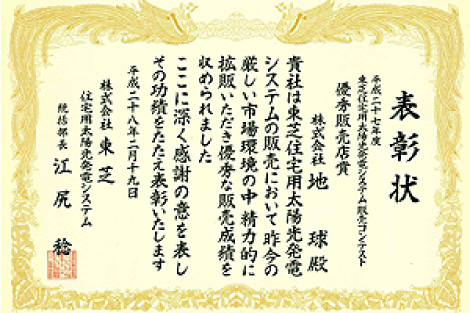 表彰状
平成二十七年度
東芝住宅用太陽光発電システム販売コンテスト
優秀販売店賞
株式会社 地球殿
貴社は東芝住宅用太陽光発電
システムの販売において昨今の
厳しい市場環境の中精力的に
拡販いただき優秀な販売成績を
収められました
ここに深く感謝の意を表し
その功績をたたえ表彰いたします
平成二十八年二月十九日
株式会社 東芝
住宅用太陽光発電システム
統括部長 江尻 稔